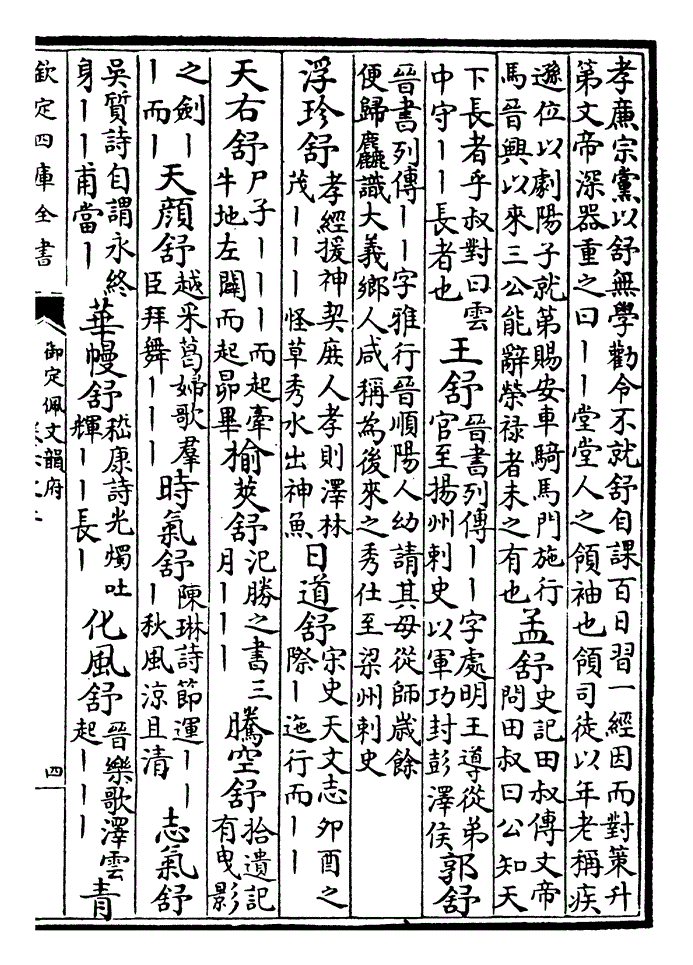 孝廉宗黨以舒無學勸令不就舒自課百日習一經因而對策升
第文帝深器重之曰丨丨堂堂人之領袖也領司徒以年老稱疾
遜位以劇陽子就第賜安車騎馬門施行
馬晉興以來三公能辭榮祿者未之有也
孟舒
史記田叔傳文帝
問田叔曰公知天
下長者乎叔對曰雲
中守丨丨長者也
王舒
晉書列傳丨丨字處明王導從弟
官至揚州剌史以軍功封彭澤侯
郭舒
晉書列傳丨丨字雅行晉順陽人幼請其母從師歲餘
便歸麤識大義鄉人咸稱為後來之秀仕至梁州剌史
浮珍舒
孝經援神契庶人孝則澤林
茂丨丨丨怪草秀水出神魚
日道舒
宋史天文志卯酉之
際丨迤行而丨丨
天右舒
尸子丨丨丨而起牽
牛地左闢而起昴畢
榆莢舒
氾勝之書三
月丨丨丨
騰空舒
拾遺記
有曳影
之劍丨
丨而丨
天顔舒
越采葛婦歌羣
臣拜舞丨丨丨
時氣舒
陳琳詩節運丨丨
丨秋風涼且清
志氣舒
吳質詩自謂永終
身丨丨甫當丨
華幔舒
嵇康詩光燭吐
輝丨丨長丨
化風舒
晉樂歌澤雲
起丨丨丨
青
欽定四庫全書
御定佩文韻府
四